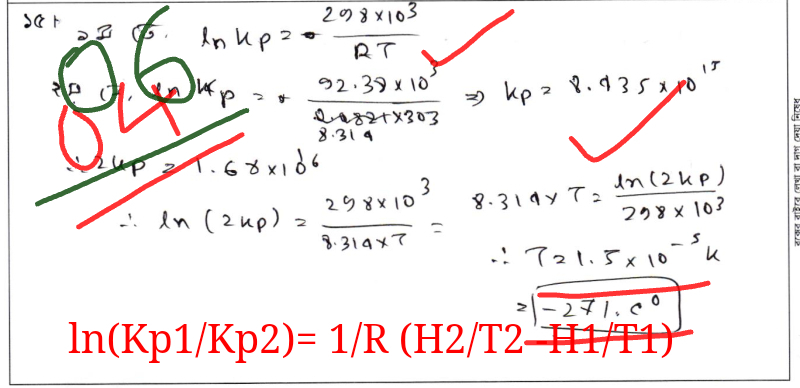 ১ম তে. ln kp = - 298×10³ / RT
২য় তে, ln Kp = + 92.38×10³ / 8.314×303 => kp = 8.435×10¹⁵
∴ 2kp = 1.68×10¹⁶
∴ ln (2kp) = 298×10³ / 8.314×T = 8.314×T = ln(2kp) / 298×10³
∴ T = 1.5×10⁻⁵ k
= -271.c⁰
06
04
ln(Kp1/Kp2)= 1/R (H2/T2 -H1/T1)